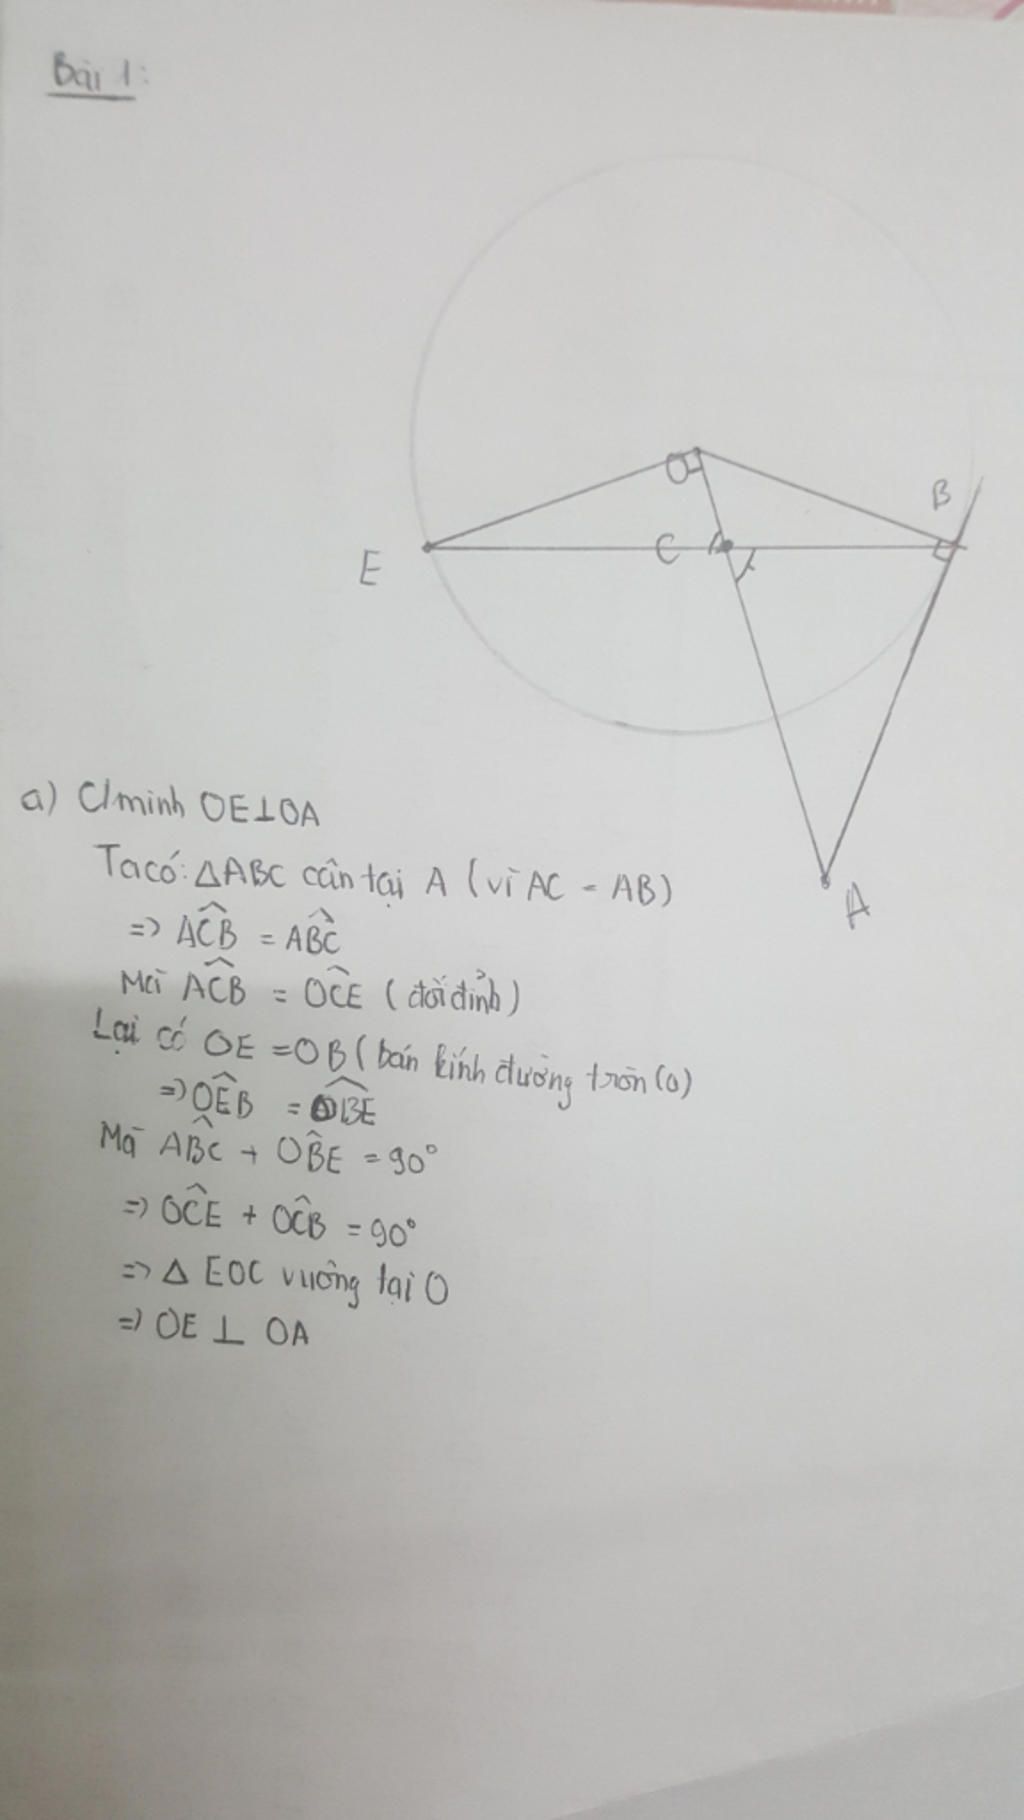 Bài 1:
O
B
C
E
A
a) C/minh OE⊥OA
Ta có: ΔABC cân tại A (vì AC = AB)
=> AĈB = AB̂C
Mà AĈB = OĈE (đối đỉnh)
Lại có OE = OB (bán kính đường tròn (O)
=> OÊB = OB̂E
Mà AB̂C + OB̂E = 90°
=> OĈE + OĈB = 90°
=> Δ EOC vuông tại O
=> OE ⊥ OA